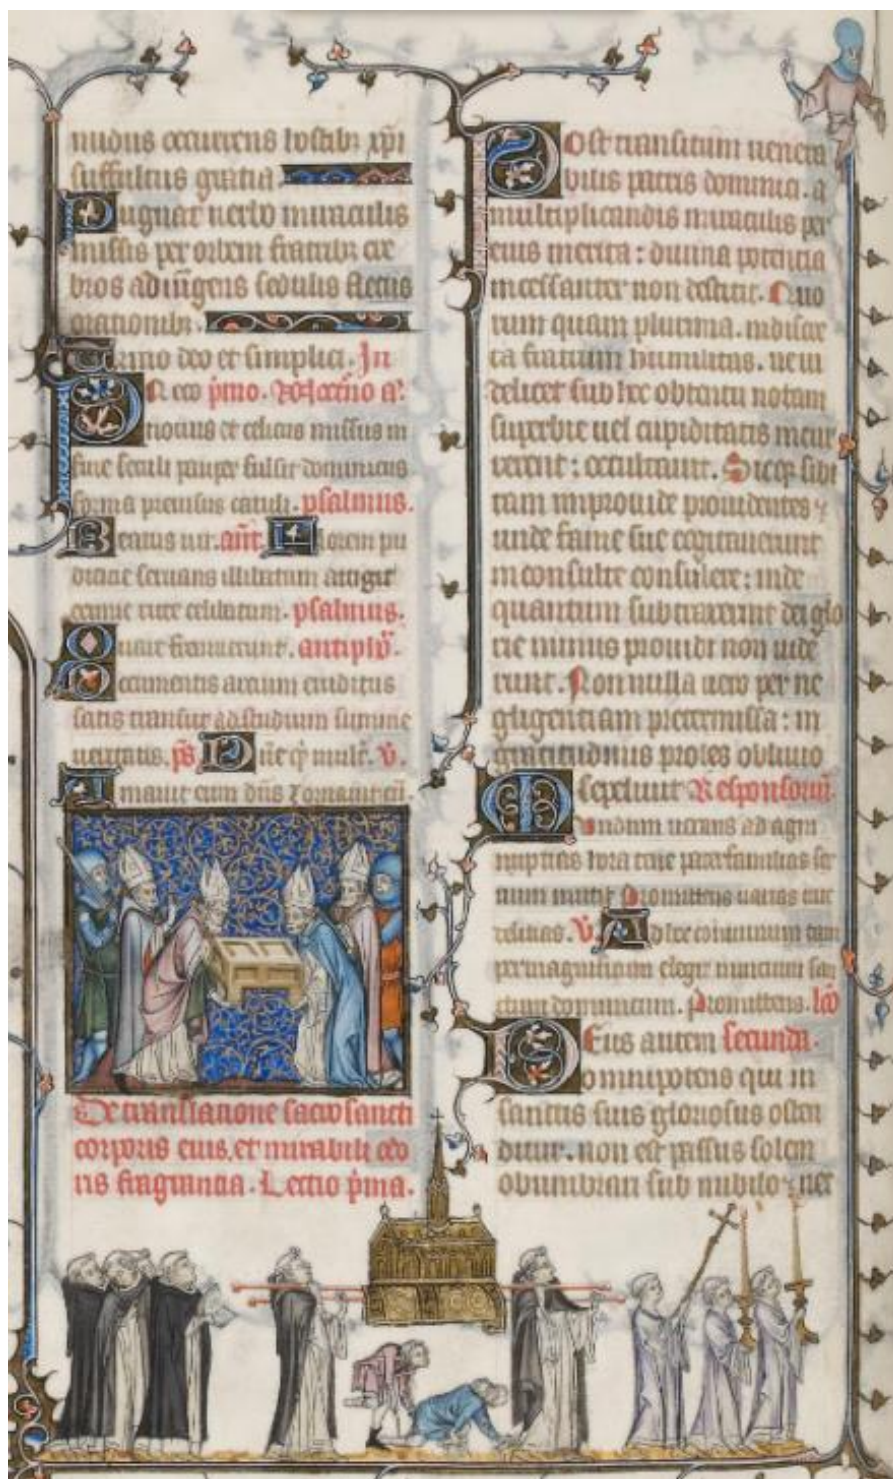 nudus occurrens hostibz xpi
suffultus gratia.
Pugnat verbo miraculis
missus per orbem fratribz cre
bros adiūgens sedulis fletus
orationibz.
Trino deo et simplici. In
Preco p̄mo. Nocturno a.
novus et celicus missus in
fine seculi pauper fulsit dominicus
forma previsus catuli. psalmus.
Beatus vir. añt. Florem pu
dicicie servans illibatum attigit
eximie vite celibatum. psalmus.
Quare fremuerunt. antiphō.
Documentis artium eruditus
satis transiit ad studium summe
veritatis. p̄s Dñe q̄ mult. v̄.
Amavit eum dñs z ornavit eū.
De translatione sacrosancti
corporis eius, et mirabili odo
ris fragrantia. Lectio p̄ma.
Post transitum venera
bilis patris dominici. a
multiplicandis miraculis per
eius merita: divina potencia
incessanter non destitit. Quo
rum quam plurima. indiscre
ta fratrum humilitas. ne vi
delicet sub hoc obtentu notam
superbie vel cupiditatis incur
rerent: occultavit. Sicqz sibi
tam improvide providentes z
unde fame sue cogitaverunt
inconsulte consulere: inde
quantum subtraxerint dei glo
rie minus providi non vide
runt. Nonnulla vero per ne
gligentiam pretermissa: in
gratitudinis proles oblivio
sepelivit Responsoriū.
Mundum vocans ad agni
nuptias hora cene paterfamilias ser
vum mittit promittens varias vite
delicias. v̄. Ad hoc convivium tam
permagnificum elegit nuncium san
ctum dominicum. Promittens. lc̄o
Deus autem secunda.
omnipotens qui in
sanctis suis gloriosus osten
ditur. non est passus solem
obumbrari sub nubilo z nec